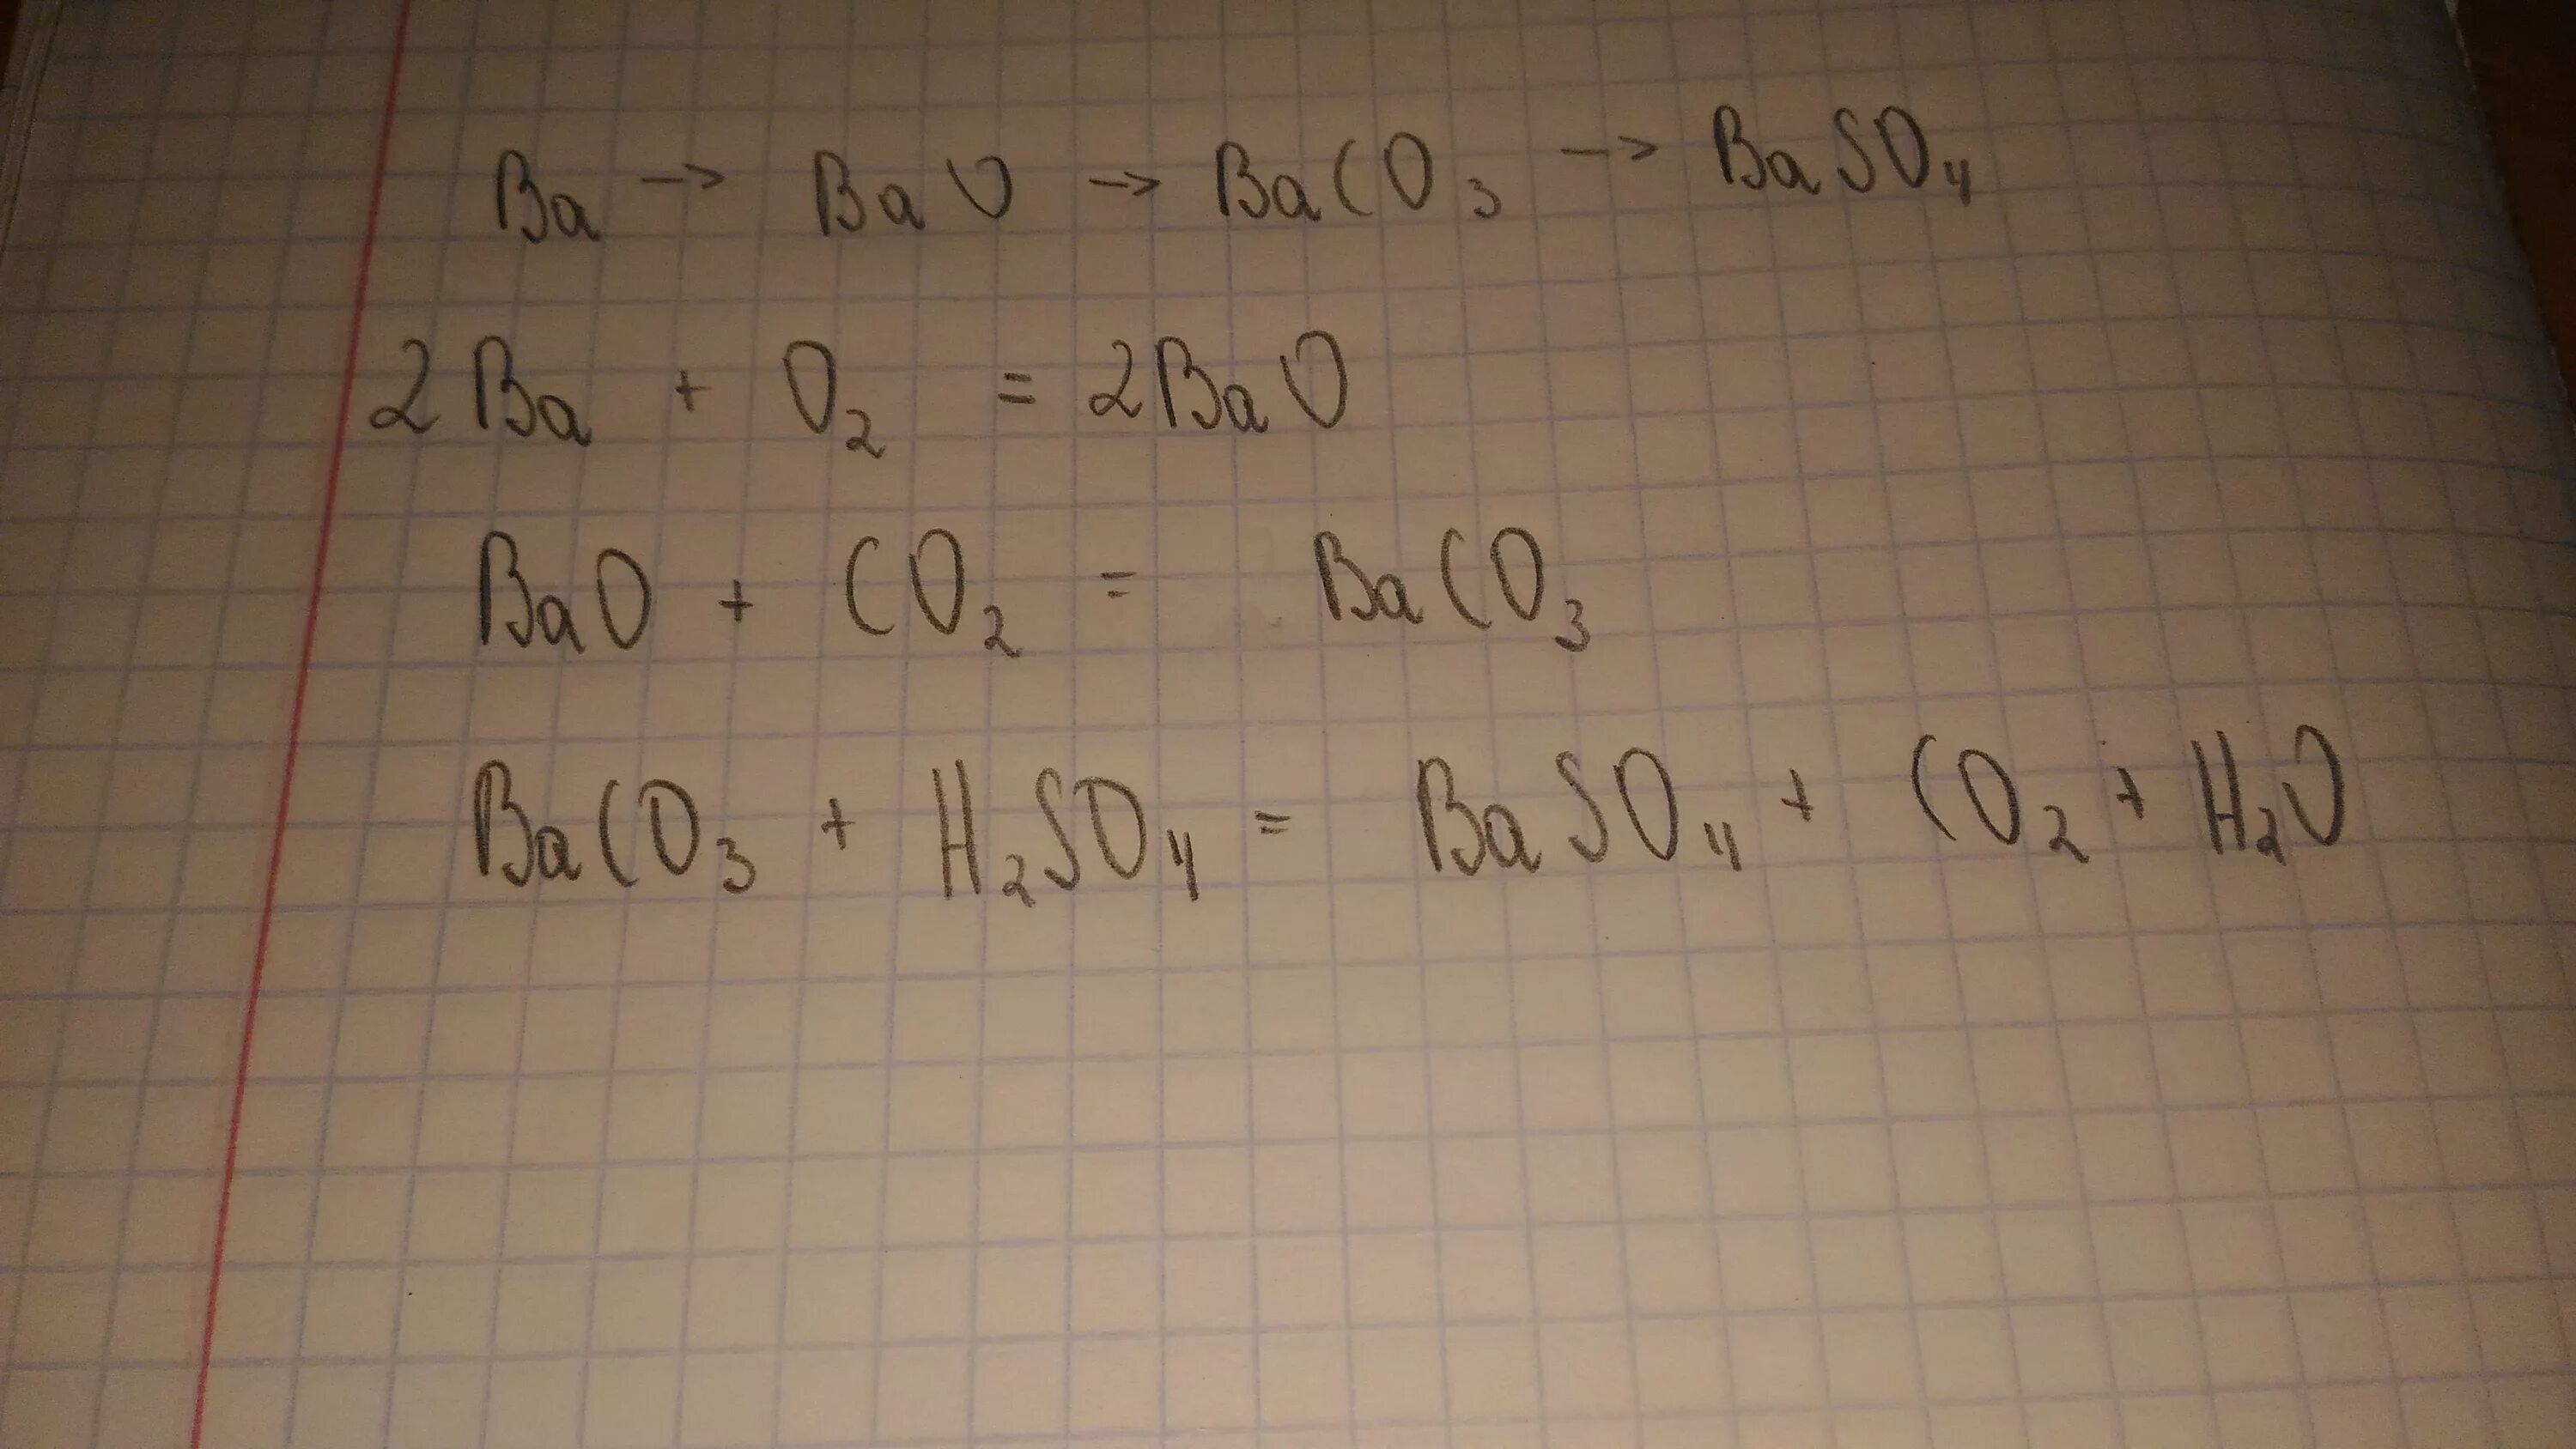 Ba → BaO → BaCO₃ → BaSO₄
2Ba + O₂ = 2BaO
BaO + CO₂ = BaCO₃
BaCO₃ + H₂SO₄ = BaSO₄ + CO₂ + H₂O